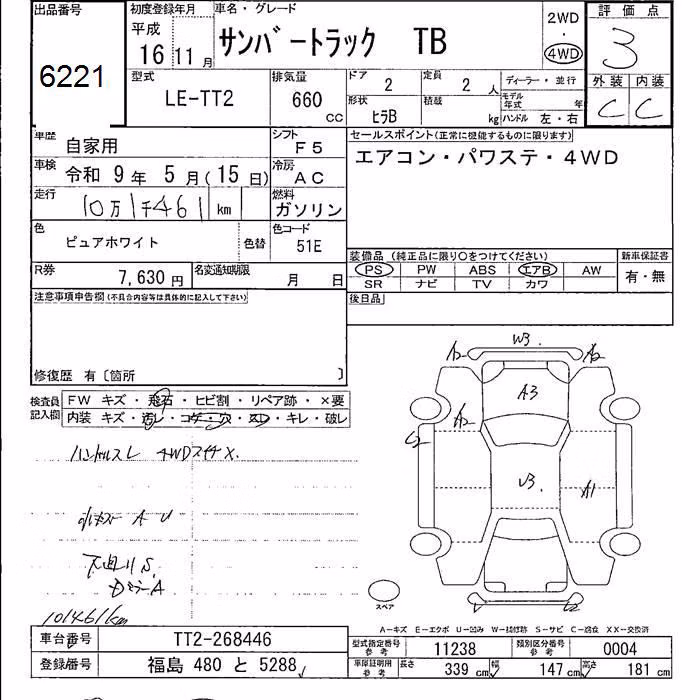 出品番号 初度登録年月 車名・グレード 評価点
6221 平成 16 11月 サンバートラック TB 2WD・4WD 3
型式 LE-TT2 排気量 660 cc ドア 2 定員 2 人 ディーラー・並行 外装 内装
形状 ヒラB 積載 kg モデル年式 年 ハンドル 左・右 C C
車歴 自家用 シフト F5 セールスポイント(正常に機能するものに限ります)
車検 令和 9年 5月(15日) 冷房 AC エアコン・パワステ・4WD
走行 10万1千461 km 燃料 ガソリン
色 ピュアホワイト 色替 色コード 51E
装備品(純正品に限り○をつけてください) 新車保証書
R券 7,630円 名変通知期限 月 日 PS PW ABS エアB AW 有・無
SR ナビ TV カワ
注意事項申告欄(不具合内容等は具体的に記入して下さい) 後日品
修復歴 有〔箇所 〕
検査員記入欄 FW キズ・飛石・ヒビ割・リペア跡・×要
内装 キズ・汚レ・コゲ・穴・スレ・キレ・破レ
ハンドルスレ 4WDスイチX
A U
下廻りS
ドミラーA
101461km
W3
A2 A2
A3
A2
C2
U3
A1
スペア
A-キズ E-エクボ U-凹み W-補修跡 S-サビ C-腐食 XX-交換済
車台番号 TT2-268446 型式指定番号 参考 11238 類別区分番号 参考 0004
登録番号 福島 480 と 5288 車庫証明用 参考 長さ 339 cm 幅 147 cm 高さ 181 cm